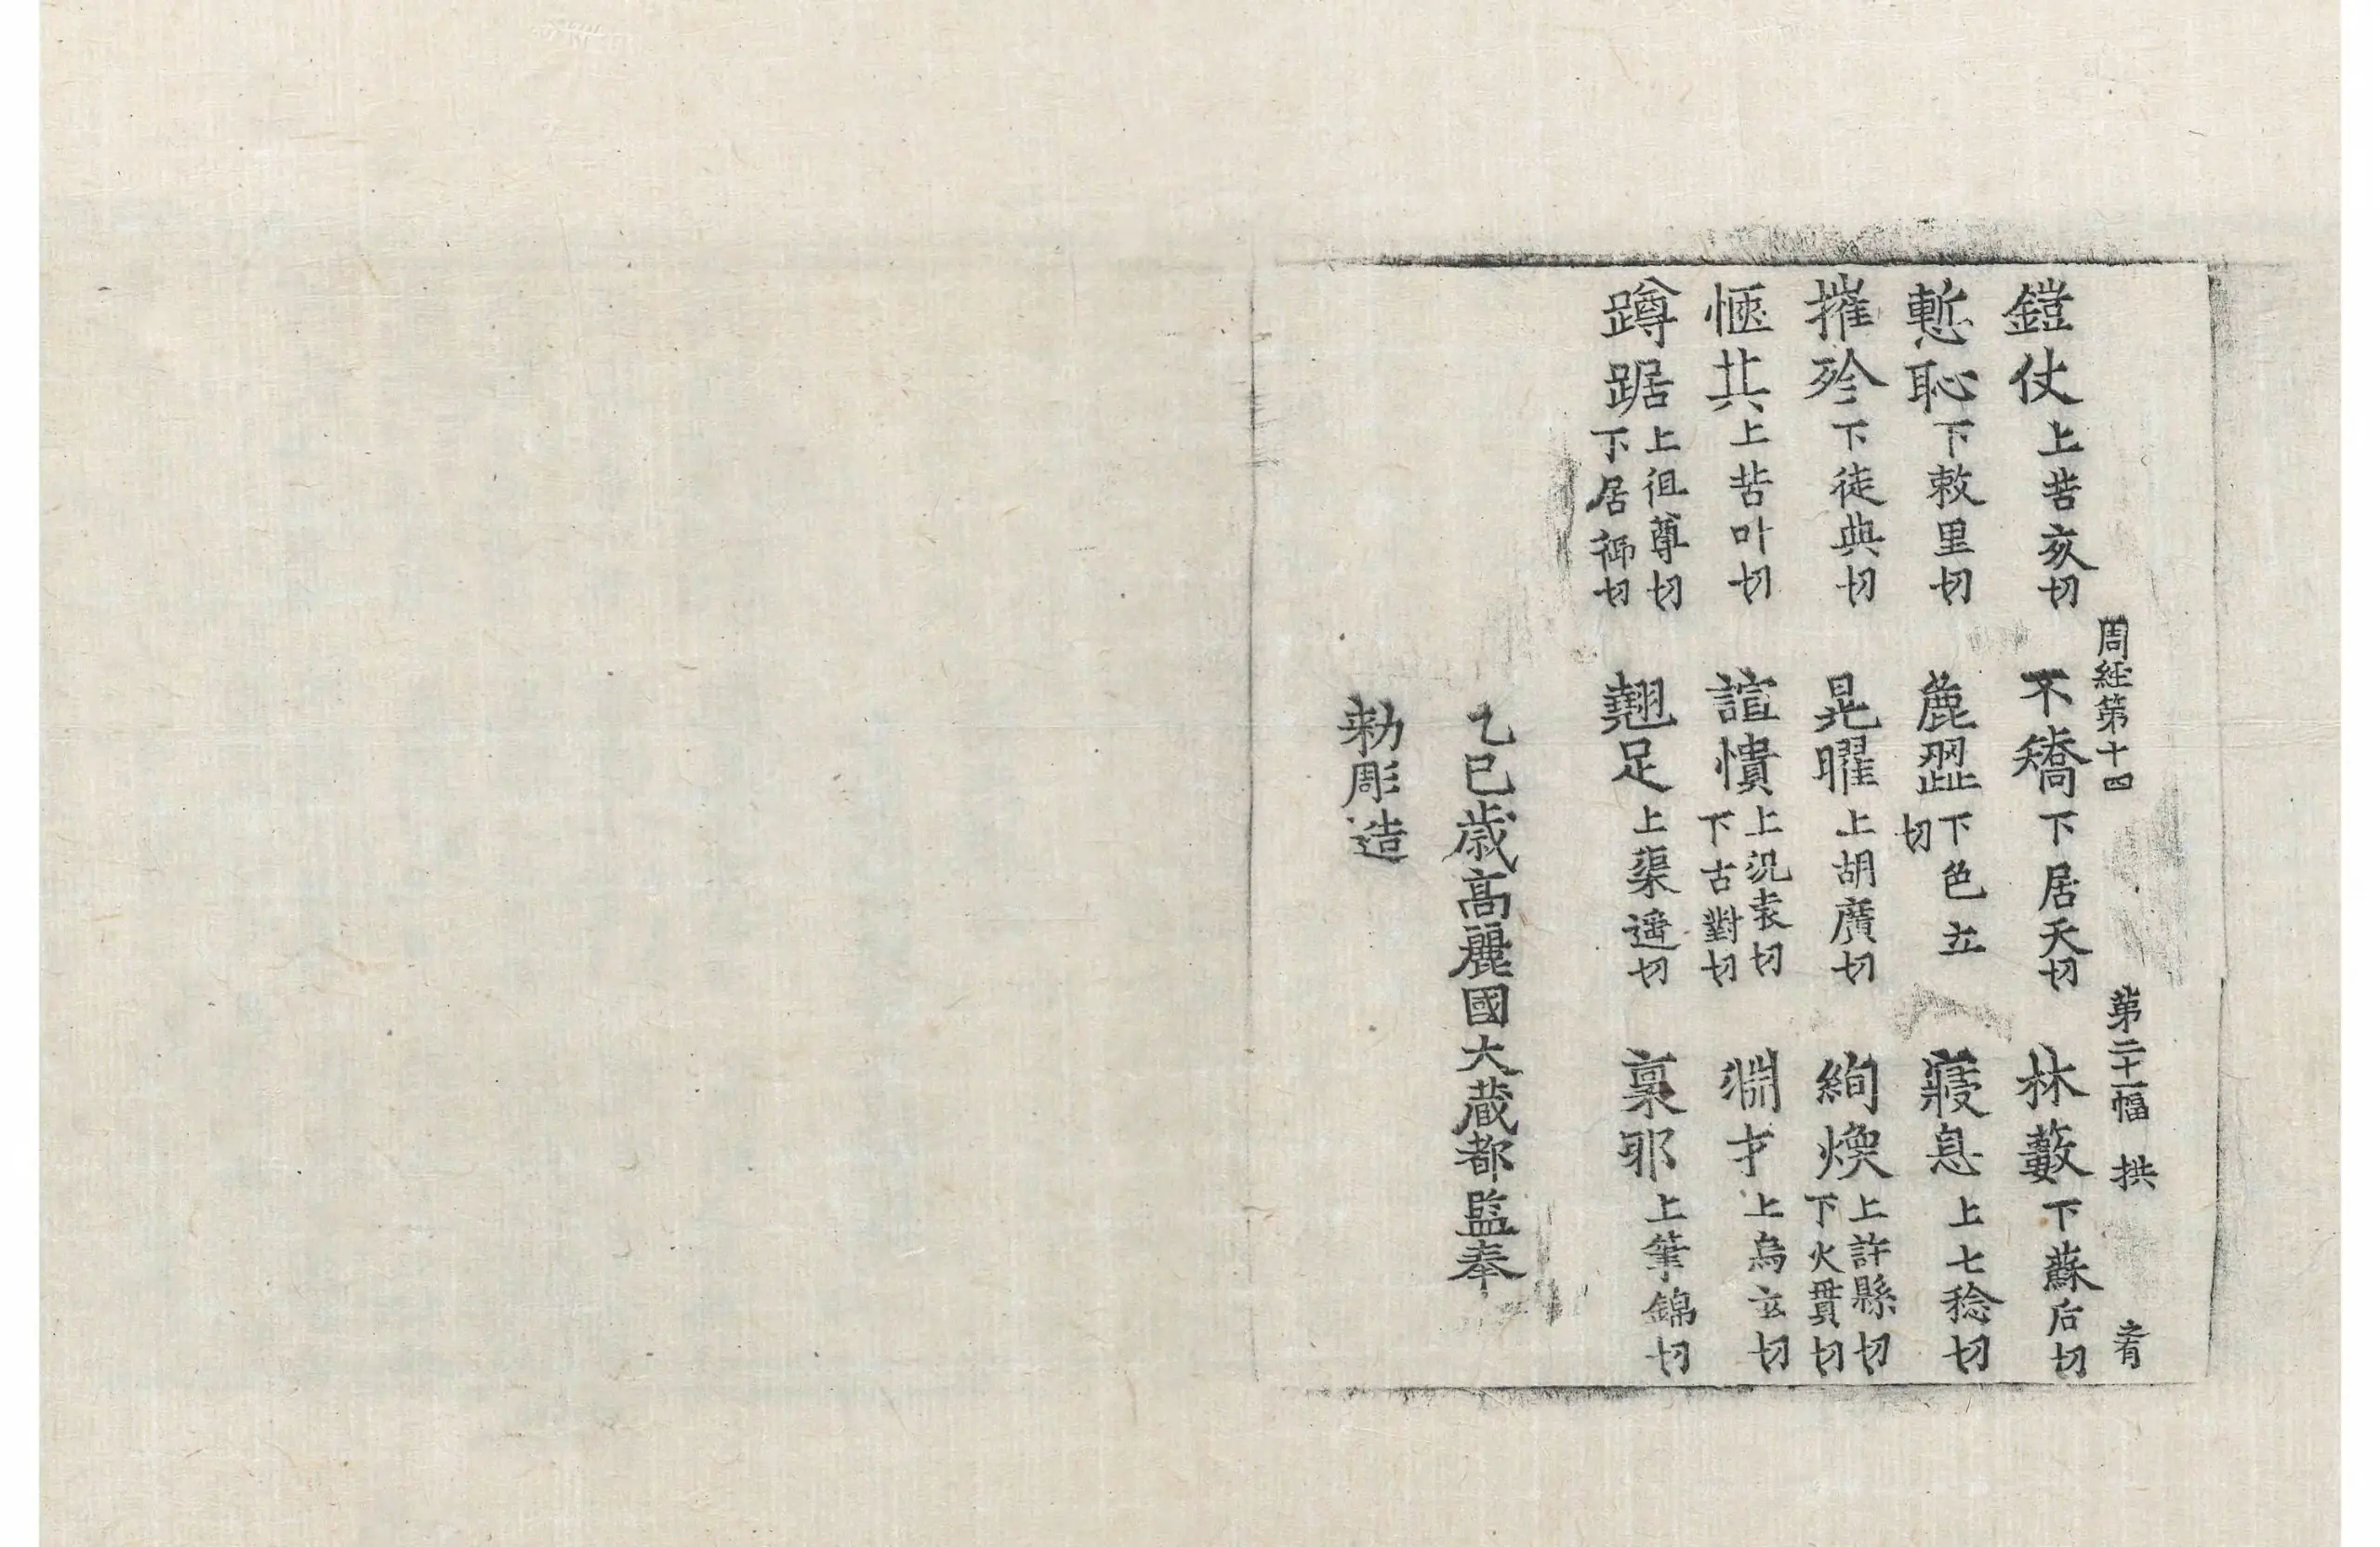 周經第十四 第二十一幅 拱 肴
鎧仗上苦亥切 不矯下居夭切 林藪下蘇后切
慙恥下敕里切 麁澀下色立切 寢息上七稔切
摧殄下徒典切 晃曜上胡廣切 絢煥上許縣切下火貫切
愜共上苦叶切 諠憒上況袁切下古對切 淵才上烏玄切
蹲踞上徂尊切下居御切 翹足上渠遥切 稟耶上筆錦切
乙巳歲高麗國大藏都監奉
勅彫造